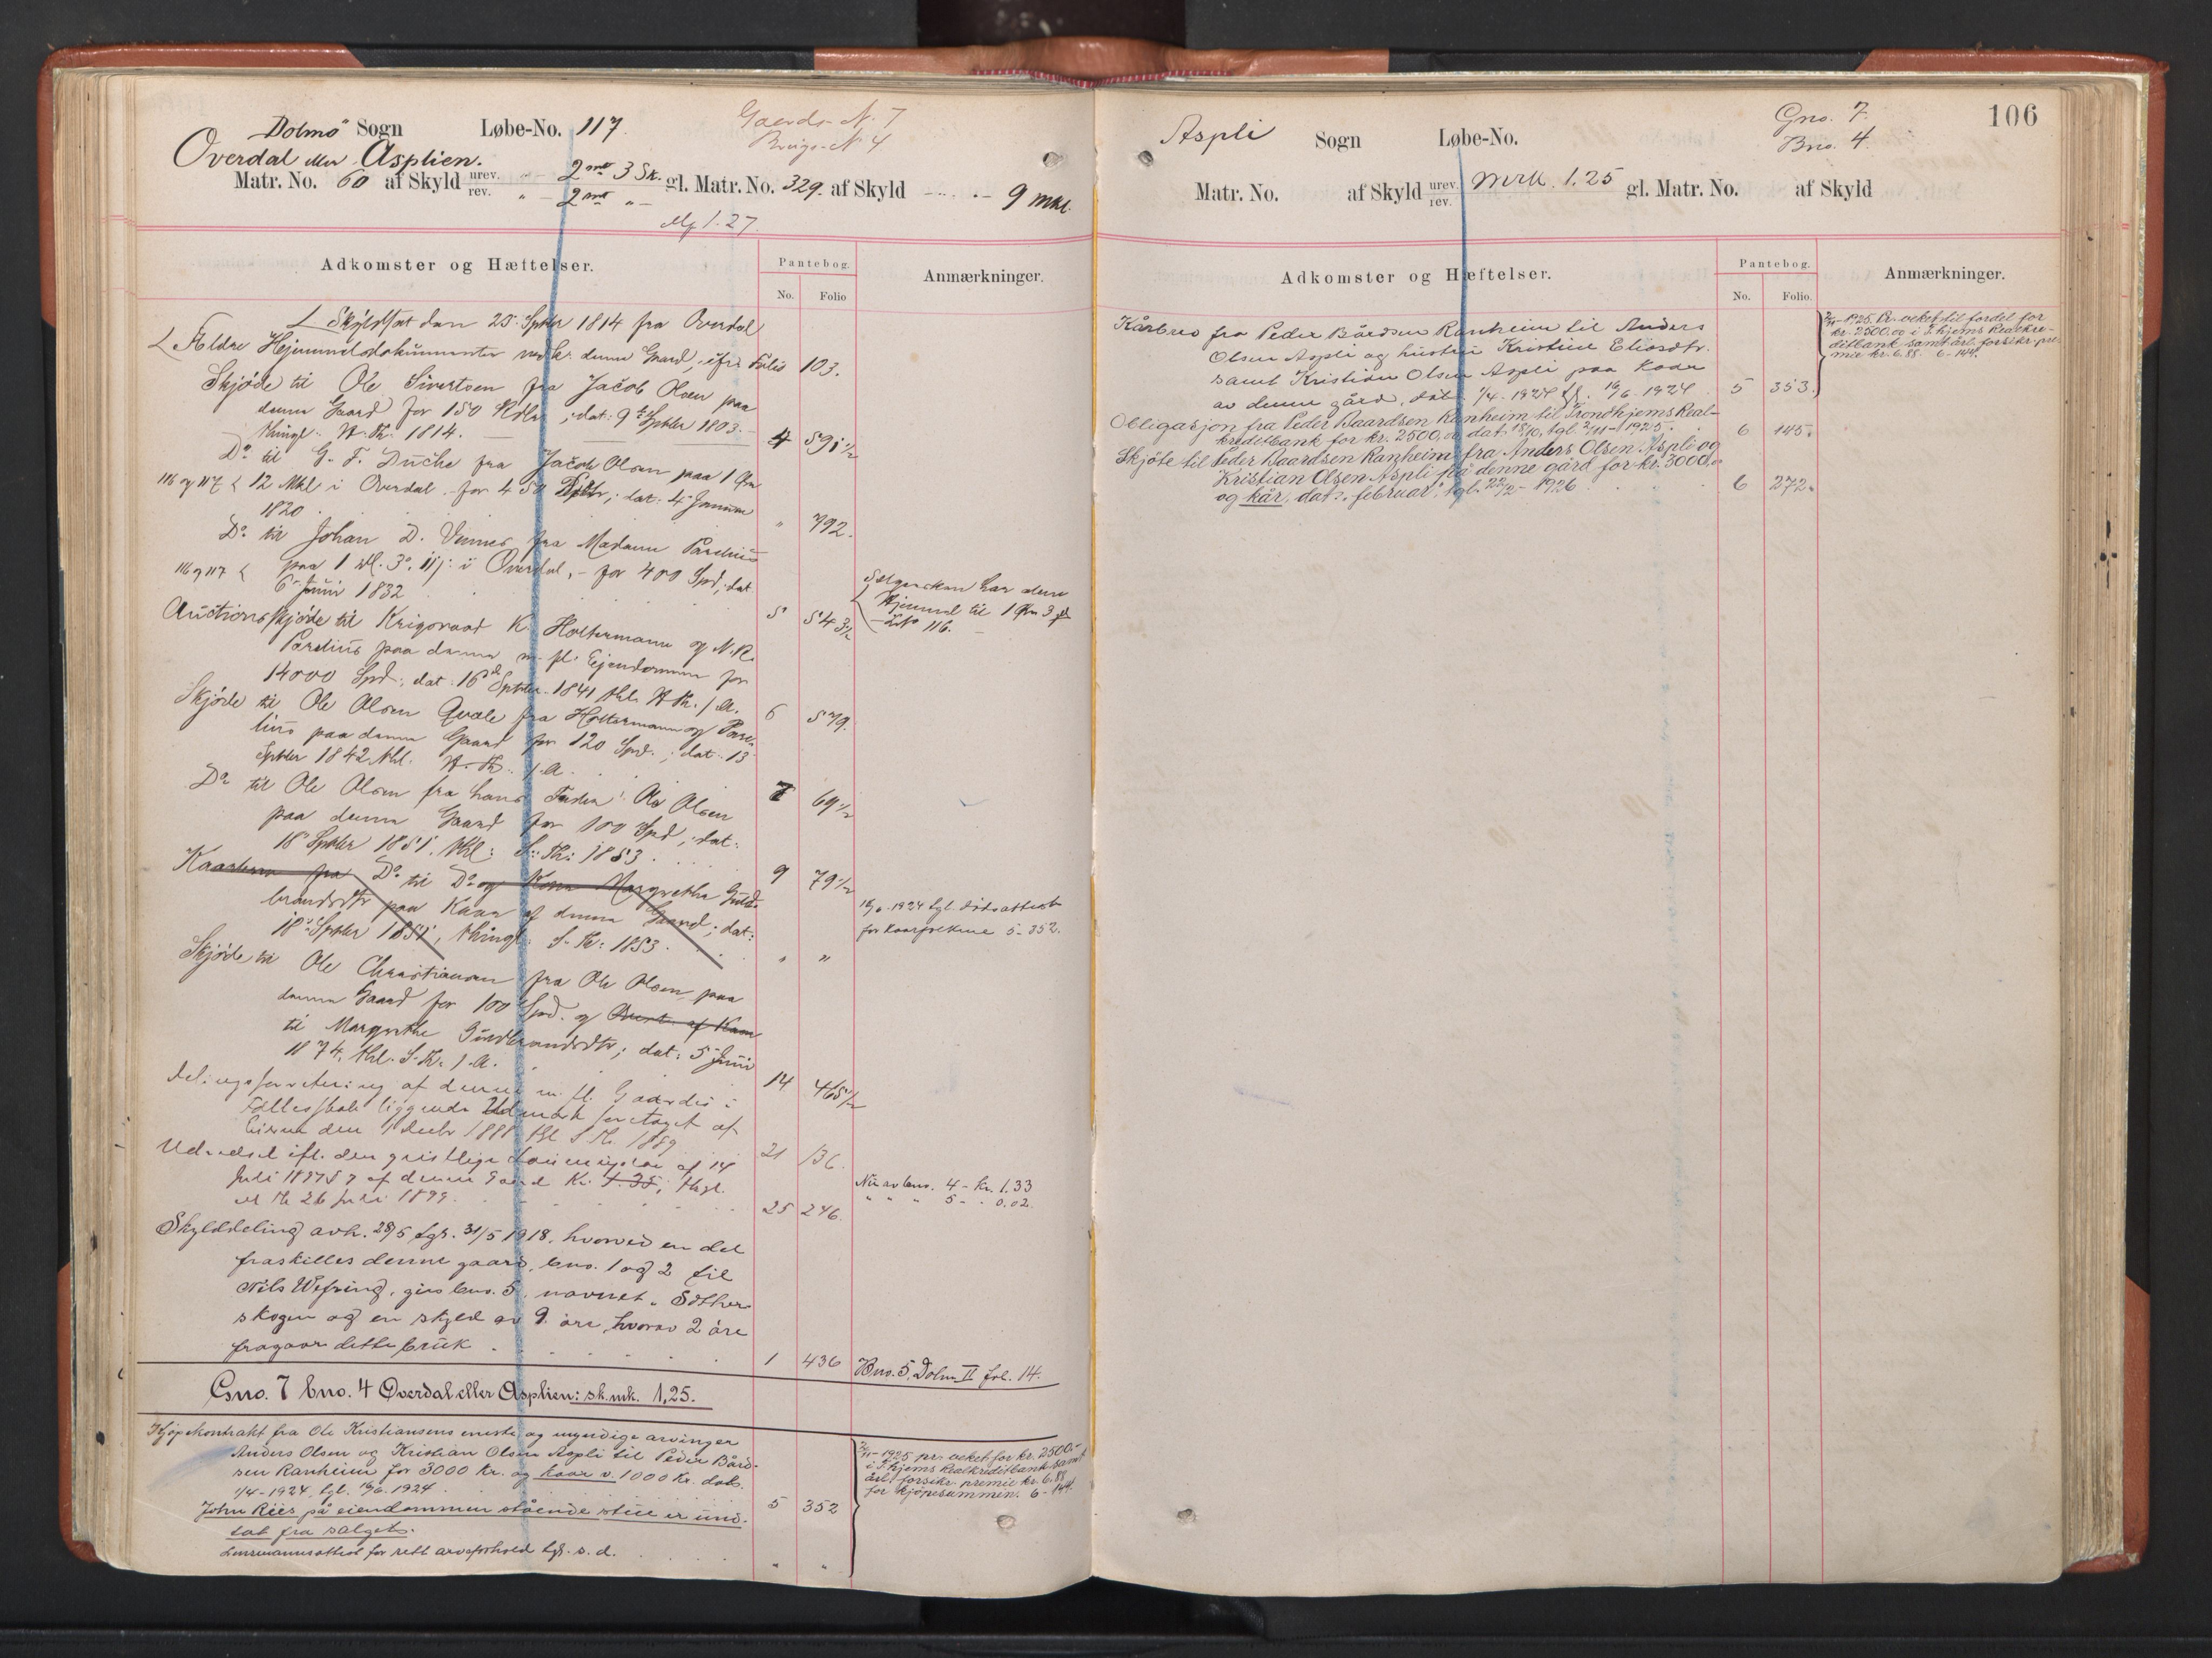 Dolmö Sogn Løbe-No. 117. Gaards-N. 7
Brugs-N. 4
Overdal eller Asplien.
Matr. No. 60 af Skyld urev. " - 2 ort 3 Sk. gl. Matr. No. 329. af Skyld - 9 mkl.
rev. " - 2 ort " -
Mk 1.27
Adkomster og Hæftelser.
Pantebog.
No. Folio
Anmærkninger.
Skyldsat den 25. Septbr 1814 fra Overdal
Ældre Hjemmelsdokumenter vedk. denne Gaard, isfr. Folio 103.
Skjøde til Ole Sivertsen fra Jacob Olsen paa
denne Gaard for 150 Rdlr, dat: 9de Septbr 1803.
thingl. H. Th. 1814. 4 591 1/2
Do til G. F. Düche fra Jacob Olsen paa 1 Øre
116 og 117 12 Mkl i Overdal for 450 dat. 4 Januar
1820. " 792.
Do til Johan D. fra Madame Parelius
116 og 117 paa 1 i Overdal, - for 400 Spd, dat
6 Juni 1832 5 543 1/2
Sælgersken har den
Hjemmel til 1 Øre 3
LNo 116.
Auctionsskjøde til Krigsraad K. Holtermann og N. R.
Parelius paa denne m. fl. Ejendomme for
14000 Spd.; dat: 16de Septbr. 1841 thl. H. Th. s. A. 6 579.
Skjøde til Ole Olsen Qvale fra Holtermann og Pare-
lius paa denne Gaard for 120 Spd.; dat. 13
Septbr 1842 thl. H. Th. s. A. 7 69 1/2
Do til Ole Olsen fra hans Fader Ole Olsen
paa denne Gaard for 100 Spd, dat.
18 Septbr 1851. thl: S. Th: 1853. 9 79 1/2
Kaarbrev fra Do til Do og Kone Margrethe Guld-
brandsdtr paa Kaar af denne Gaard; dat:
18 Septbr 1851, thingl. S. Th: 1853. " "
16/6-1924 tgl. dödsattest
for kaarfolkene 5-352.
Skjøde til Ole Christiansen fra Ole Olsen paa
denne Gaard for 100 Spd. og af Kaar
til Margrethe Guldbrandsdtr; dat: 5 Juni
1874. thl. S. Th. s. A. 14 465 1/2
Delingsforretning af denne m. fl. Gaardes i
Fællesskab liggende Udmark foretaget af
den 1 Decbr 1888 thl S. Th. 1889 21 136.
Udvedsel ifl. den af 14
Juli 1897 § 7 af denne Gaard Kr. 1.35, thgl.
ved Th 26 Juli 1899. 25 246.
Nu av bno. 4 - kr. 1.33
" " " 5 - " 0.02.
Skylddeling avh. 28/5 tgl. 31/5 1918, hvorved en del
fraskilles denne gaard, bno. 1 og 2 til
Nils Wefring, gis bno. 5, navnet "Sæther-
skogen og en skyld av 9 öre, hvorav 2 öre
fragaar dette bruk 1 436 Bno. 5, Dolm II fol. 14.
Gno. 7 bno. 4 Overdal eller Asplien: sk.mk. 1,25.
Kjøpekontrakt fra Ole Kristiansens eneste og myndige arvinger
Anders Olsen og Kristian Olsen Aspli til Peder Bård-
sen Ranheim for 3000 kr. og kaar v. 1000 kr. dat.
1/4-1924, tgl. 16/6 1924. 5 352
2/11-1925 pr. veket for kr. 2500.-
i T.hjems Realkreditbank samt
årl. forsikr. premie kr. 6.88
for kjöpesummen. 6-144.
John Riers på eiendommen stående stue er und-
tat fra salget.
Lensmannsattest for rett arveforhold tgl. s. d. " "
106
Aspli Sogn Løbe-No. Gno. 7.
Bno. 4.
Matr. No. af Skyld urev. Mrk. 1.25 gl. Matr. No. af Skyld
rev.
Adkomster og Hæftelser.
Pantebog.
No. Folio.
Anmærkninger.
Kårbrev fra Peder Bårdsen Ranheim til Anders
Olsen Aspli og hustru Kristine Eliasdtr.
samt Kristian Olsen Aspli paa kaar
av denne gård, dat. 1/4-1924 tgl. 16/6-1924. 5 353.
2/11-1925. Pr. veket til fordel for
kr. 2500.00 i T.hjems Realkre-
ditbank samt årl. forsikr. pre-
mie kr. 6.88. 6-144.
Obligasjon fra Peder Baardsen Ranheim til Trondhjems Real-
kreditbank for kr. 2500,00 dat. 18/10, tgl. 2/11-1925. 6 145.
Skjöte til Peder Baardsen Ranheim fra Anders Olsen Aspli og
Kristian Olsen Aspli på denne gård for kr. 3000,00
og kår, dat. februar, tgl. 22/2-1926 6 272.